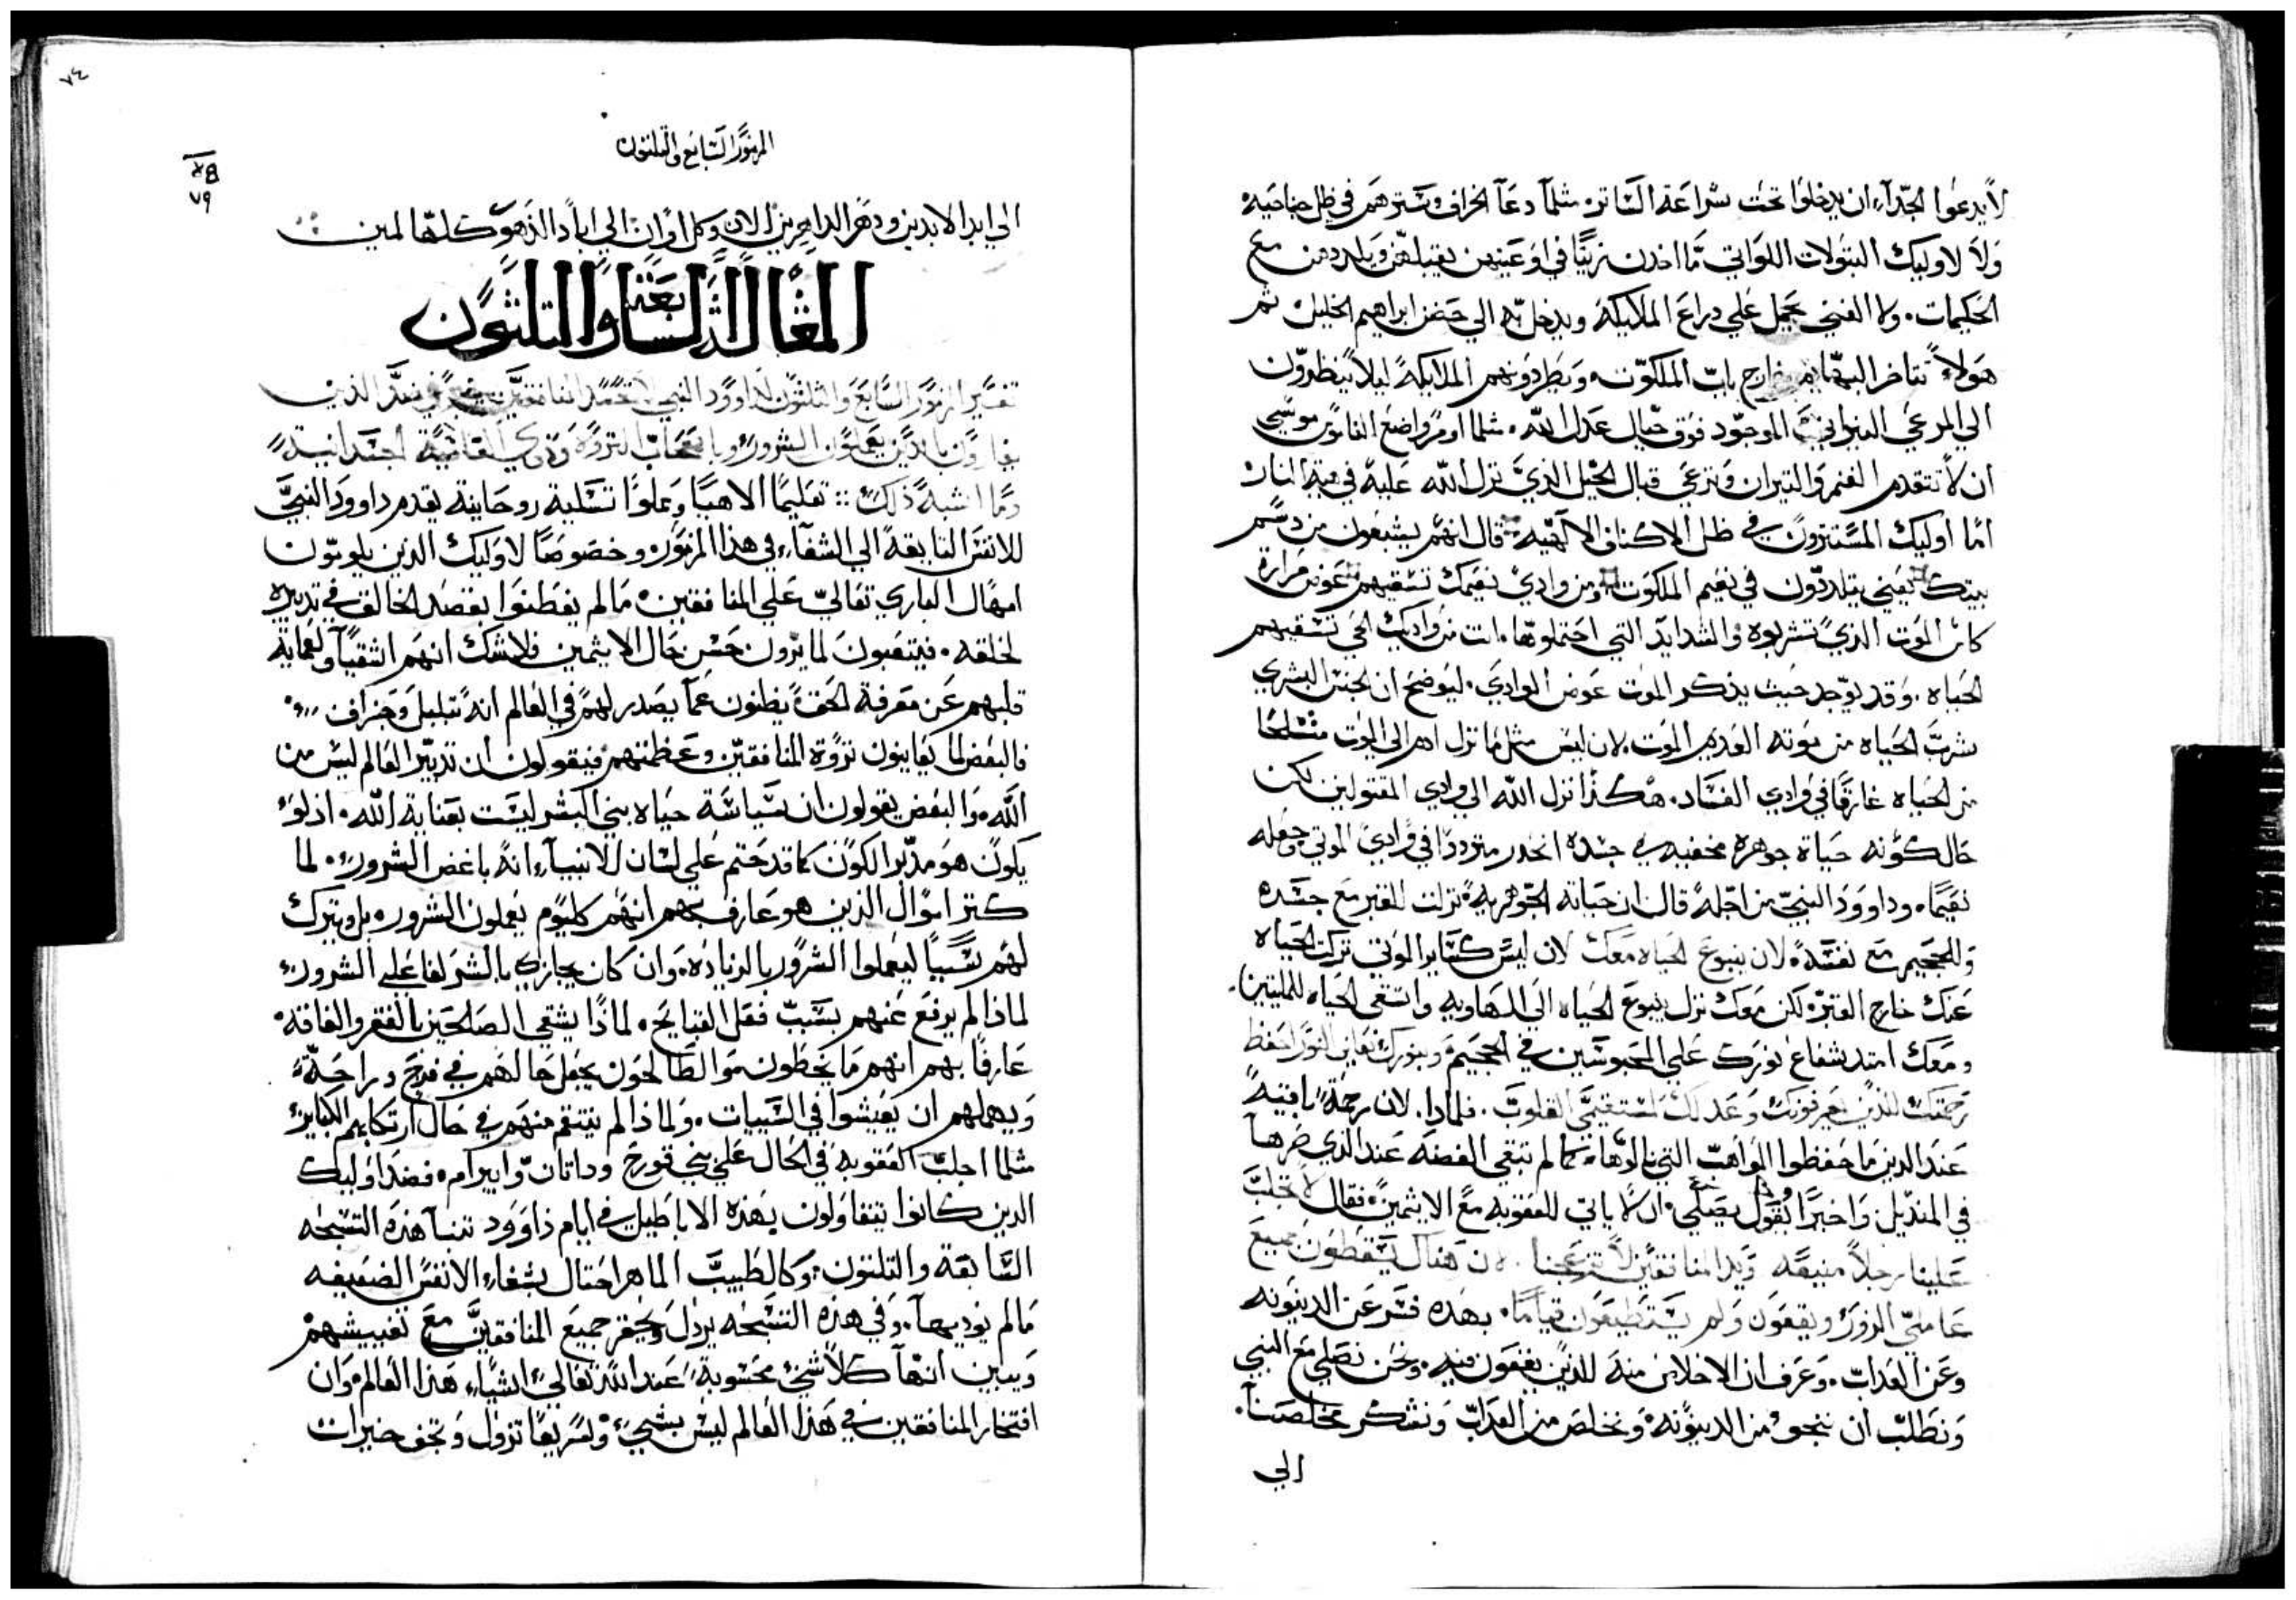 لا يدعوا الجدآء ان يدخلوا تحت شراعة الساتره مثلما دعا الخراف وسترهم في ظل جناحيه
ولا لاوليك البتولات اللواتي ما اخدن زيتًا في اوعيتهن يقبلهن ويلددهن مع
الحكيمات. ولا الغني يحمل علي دراع الملايكه ويدخل به الي حضن ابراهيم الخليل ثم
هولاء تتاخر البهايم خارج باب الملكوت. ويطردونهم الملايكة ليلا ينظرون
الي المرعي الموجود فوق جبال عدل الله. مثلما اومر واضع القانون موسي
ان لا تتقدم الغنم والتيران وترعي قبال الجبل الذي نزل الله عليه في هيه النار
اما اوليك المستترون في ظل الاكناف الالهيه قال انهم يشبعون من دسم
بيتك يعني يتلددون في نعيم الملكوت ومن وادي نعيمك تسقيهم عوض مرارة
كاس الموت الذي تشربوه والشدايد التي احتملوها. انت من واديك الحي تسقيهم
الحياه. وقد يوجد حيث يذكر الموت عوض الوادي. ليوضح ان الجنس البشري
شرب الحياه من موته العديم الموت. لان ليس مثل ما نزل ادم الي الموت متسلحًا
من الحياه غارقًا في وادي الفساد. هكذا نزل الله الي وادي المقتولين لكن
حال كونه حياة جوهره مخفيه في جسده انحدر مترددا في وادي الموتي وجعله
نعيمًا. وداوود النبي من اجله قال ان حياته الجوهريه نزلت للقبر مع جسده
وللجحيم مع نفسه. لان ينبوع الحياه معك لان ليس كساير الموتي تركت الحياه
عنك خارج القبر. لكن معك نزل ينبوع الحياه الي الهاويه واسقي الحياه للميتين.
ومعك امتد شعاع نورك علي المحبوسين في الجحيم وبنورك نعاين النور احفظ
رحمتك للذين يعرفونك وعدلك لمستقيمي القلوب. فلمادا. لان رحمة باقيه
عند الدين ما حفظوا المواهب التي نالوها. كما لم تبقي الفضه عند الذي صرها
في المنديل واخيرًا يقول يصلي ان لا ياتي للعقوبه مع الاثيمين. فقال لا تجلب
علينا رجلاً منيعه ويد المنافقين لا تزعجنا. لان هناك يسقطون جميع
عاملي الزور ويقفون ولم يستطيعون قيامًا. بهذه فسر عن الدينونه
وعن العداب. وعرف ان لا خلاص منه للذين يقعون فيه. ونحن نصلي مع النبي
ونطلب ان ننجو من الدينونه ونخلص من العداب ونشكر مخلصنا.
الي
٧٤
٧٩
المزمور السابع والتلتون
الي ابد الابدين ودهر الداهرين الان وكل اوان الي اباد الدهور كلها امين
المقالة السابعة والتلثون
تفسير المزمور السابع والثلثون لداوود النبي
وما اشبه ذلك تعليمًا الاهيًا ومملوًا تسلية روحانية يقدم داوود النبي
للانفس التايقة الي الشفاء في هذا المزمور وخصوصًا لاوليك الذين يلومون
امهال الباري تعالي علي المنافقين. مالم يفطنوا بقصد الخالق في تدبيره
لخلقه. فيتعبون لما يرون حسن حال الاثيمين فلا شك انهم اشقياء ولعماية
قلبهم عن معرفة الحق يظنون عما يصدر لهم في العالم انه تبلبل وجزاف
فالبعض لما يعاينون تروة المنافقين وعظمتهم فيقولون ان تدبير العالم ليس من
الله. والبعض يقولون ان سياسة حياه بني البشر ليست بعناية الله. اذ لو
يكون هو مدبر الكون كما قد ختم علي لسان الانبياء انه باغض الشرور. لما
كتر اموال الذين هو عارف بهم انهم كل يوم يعملون الشرور. بل ويترك
لهم سببًا ليعملوا الشرور بالزياده. وان كان يجازي بالشر لفاعلي الشرور
لماذا لم يرفع عنهم سبب فعل القبايح. لماذا يشقي الصالحين بالفقر والفاقه
عارفًا بهم انهم ما يخطون والطالحون يجعل حالهم في فرح وراحة
ويمهلهم ان يعيشوا في السييات. ولماذا لم ينتقم منهم في حال ارتكابهم الكباير
مثلما اجلب العقوبه في الحال علي بني قورح وداتان وابيرام. فضد اوليك
الدين كانوا يتفاولون بهذه الاباطيل في ايام داوود تنبا هذه التسبحه
السابعة والتلتون. وكالطبيب الماهر احتال بشفاء الانفس الضعيفه
مالم يوديها. وفي هذه التسبحه يردل ويحقر جميع المنافقين مع تعييشهم
ويبين انها كلا شي محسوبة عند الله تعالي اشياء هذا العالم. وان
افتخار المنافقين في هذا العالم ليس بشي. ولسريعًا تزول وتجف خيرات